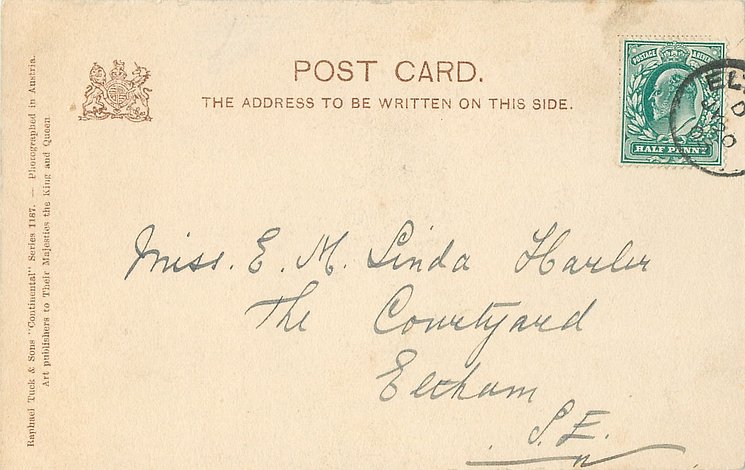 POST CARD.
THE ADDRESS TO BE WRITTEN ON THIS SIDE.
POSTAGE
HALF PENNY
EL
D
Miss. E. M. Linda Harler
The Courtyard
Eltham
S.E.
Raphael Tuck & Sons "Continental" Series 1187. — Photographed in Austria.
Art publishers to Their Majesties the King and Queen